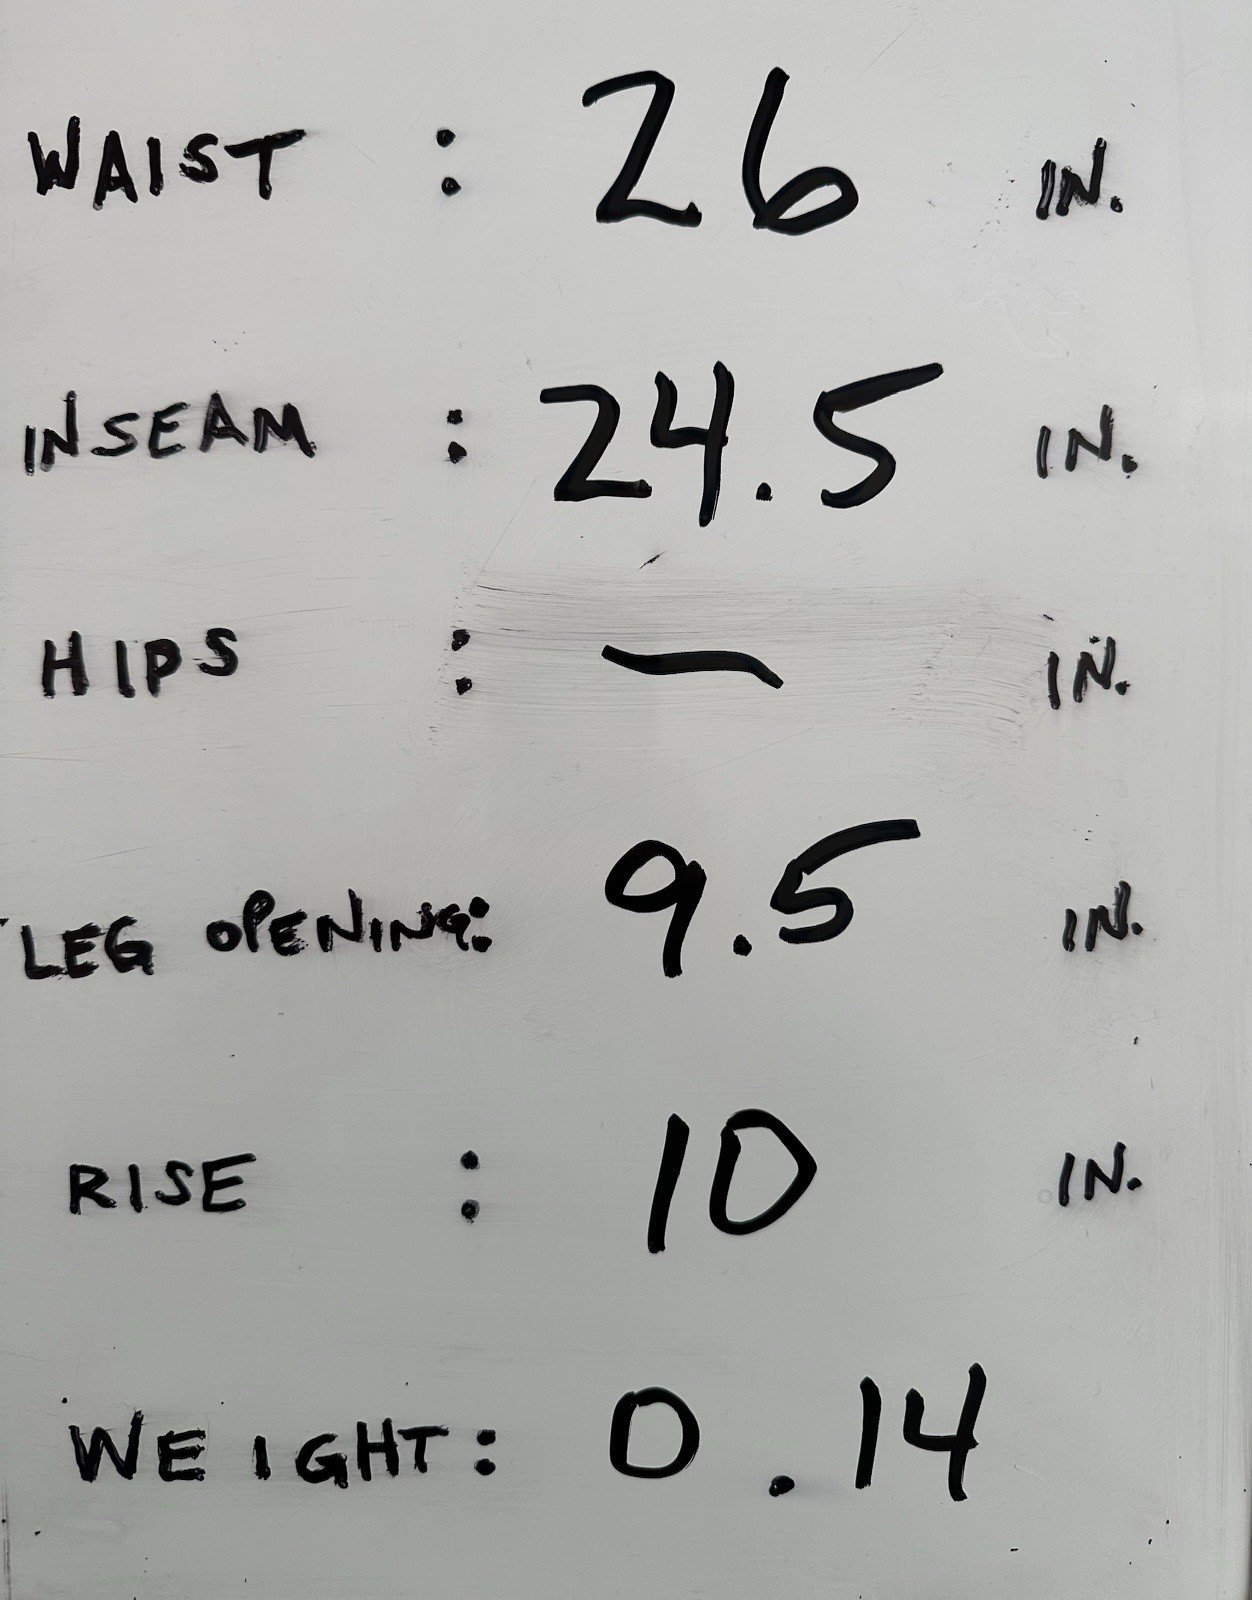 WAIST : 26 IN.
INSEAM : 24.5 IN.
HIPS : — IN.
LEG OPENING: 9.5 IN.
RISE : 10 IN.
WEIGHT: 0.14